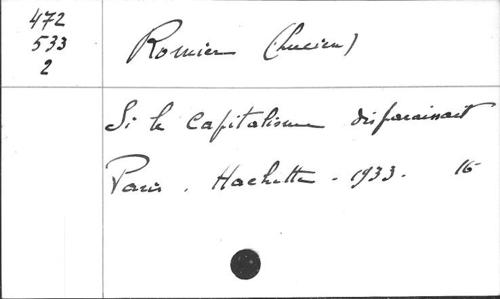 472
533
2
Romier (Lucien)
Si le capitalisme disparaissait
Paris. Hachette - 1933. 16